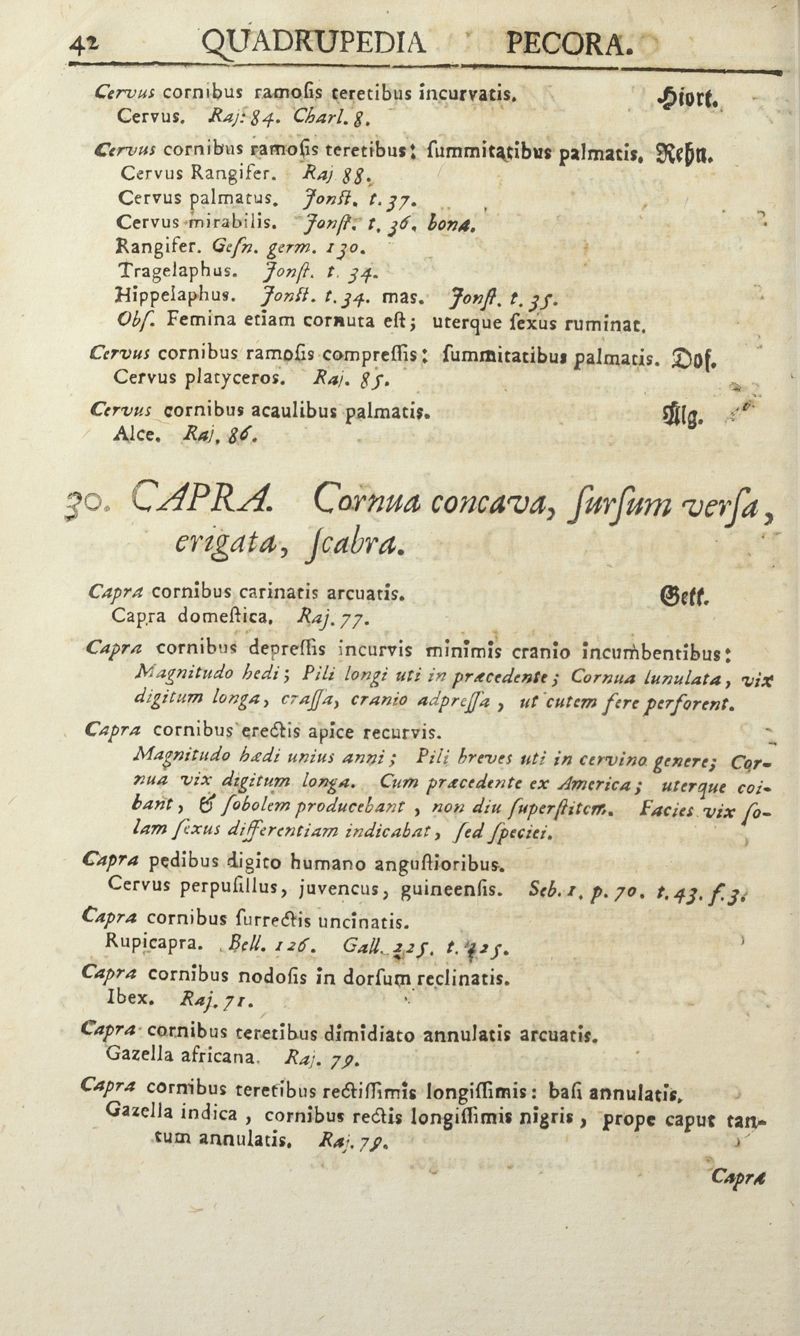 42 QUADRUPEDIA PECORA.
Cervus cornibus ramoſis teretibus incurvatis. Hiort.
Cervus. Raj: 84. Charl. 8.
Cervus cornibus ramoſis teretibus: ſummitatibus palmatis, Rehn.
Cervus Rangifer. Raj 88.
Cervus palmatus. Jonſt. t. 37.
Cervus mirabilis. Jonſt. t. 36. bona.
Rangifer. Geſn. germ. 130.
Tragelaphus. Jonſt. t. 34.
Hippelaphus. Jonſt. t. 34. mas. Jonſt. t. 35.
Obſ. Femina etiam cornuta eſt; uterque ſexus ruminat.
Cervus cornibus ramoſis compreſſis: ſummitatibus palmatis. Dof.
Cervus platyceros. Raj. 85.
Cervus cornibus acaulibus palmatis. Ælg.
Alce. Raj. 86.
30. CAPRA. Cornua concava, ſurſum verſa,
erigata, ſcabra.
Capra cornibus carinatis arcuatis. Gett.
Capra domeſtica. Raj. 77.
Capra cornibus depreſſis incurvis minimis cranio incumbentibus:
Magnitudo hedi; Pili longi uti in præcedente; Cornua lunulata, vix
digitum longa, craſſa, cranio adpreſſa, ut cutem fere perforent.
Capra cornibus erectis apice recurvis.
Magnitudo hædi unius anni; Pili breves uti in cervino genere; Cor-
nua vix digitum longa. Cum præcedente ex America; uterque coi-
bant, & ſobolem producebant, non diu ſuperſtitem. Facies vix ſo-
lam ſexus differentiam indicabat, ſed ſpeciei.
Capra pedibus digito humano anguſtioribus.
Cervus perpuſillus, juvencus, guineenſis. Seb. 1. p. 70. t. 43. f. 3.
Capra cornibus ſurrectis uncinatis.
Rupicapra. Bell. 126. Gall. 225. t. 225.
Capra cornibus nodoſis in dorſum reclinatis.
Ibex. Raj. 71.
Capra cornibus teretibus dimidiato annulatis arcuatis.
Gazella africana. Raj. 79.
Capra cornibus teretibus rectiſſimis longiſſimis: baſi annulatis.
Gazella indica, cornibus rectis longiſſimis nigris, prope caput tan-
tum annulatis. Raj. 79.
Capra